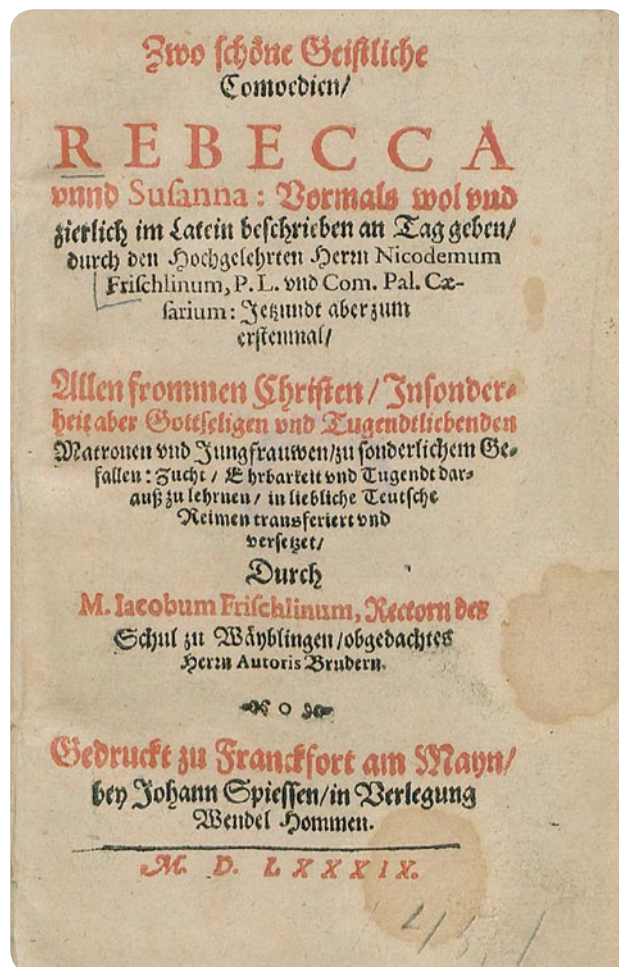 Zwo schöne Geistliche
Comoedien/
REBECCA
vnnd Susanna: Vormals wol vnd
zierlich im Latein beschrieben an Tag geben/
durch den Hochgelehrten Herrn Nicodemum
Frischlinum, P. L. vnd Com. Pal. Cæ-
sarium: Jetzundt aber zum
erstenmal/
Allen frommen Christen/ Insonder-
heit aber Gottseligen vnd Tugendtliebenden
Matronen vnd Jungfrauwen/zu sonderlichem Ge-
fallen: Zucht / Ehrbarkeit vnd Tugendt dar-
auß zu lehrnen/ in liebliche Teutsche
Reimen transferiert vnd
versetzet/
Durch
M. Iacobum Frischlinum, Rectorn des
Schul zu Wäyblingen/obgedachtes
Herrn Autoris Brudern.
Gedruckt zu Franckfort am Mayn/
bey Johann Spiessen/in Verlegung
Wendel Hommen.
M. D. LXXXIX.